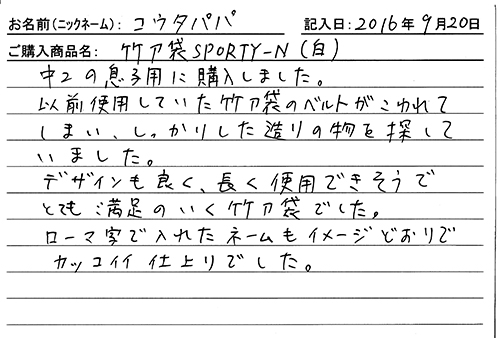 お名前(ニックネーム): コウタパパ 記入日:2016年9月20日
ご購入商品名: 竹刀袋SPORTY-N(白)
中2の息子用に購入しました。
以前使用していた竹刀袋のベルトがこわれて
しまい、しっかりした造りの物を探して
いました。
デザインも良く、長く使用できそうで
とてもご満足のいく竹刀袋でした。
ローマ字で入れたネームもイメージどおりで
カッコイイ仕上りでした。